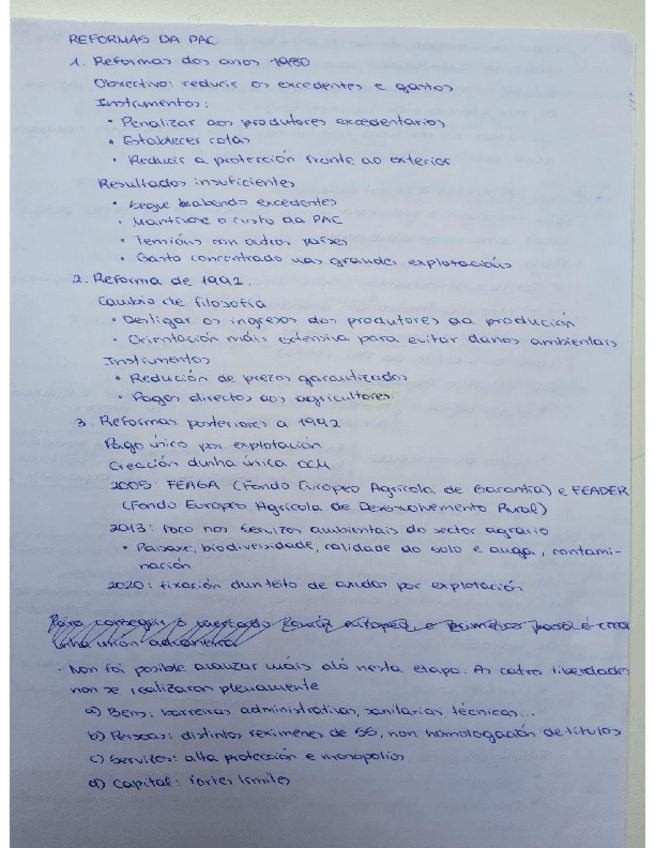 REFORMAS DA PAC
1. Reformas dos anos 1980
Obxectivo: reducir os excedentes e gastos
Instrumentos:
• Penalizar aos produtores excedentarios
• Establecer cotas
• Reducir a protección fronte ao exterior
Resultados insuficientes
• Segue habendo excedentes
• Mantívose o custo da PAC
• Tensións con outros países
• Gasto concentrado nas grandes explotacións
2. Reforma de 1992.
Cambio de filosofía
• Desligar os ingresos dos produtores da produción
• Orientación máis extensiva para evitar danos ambientais
Instrumentos
• Redución de prezos garantizados
• Pagos directos aos agricultores
3. Reformas posteriores a 1992
Pago único por explotación
Creación dunha única OCM
2005: FEAGA (Fondo Europeo Agrícola de Garantía) e FEADER
(Fondo Europeo Agrícola de Desenvolvemento Rural)
2013: foco nos servizos ambientais do sector agrario
• Paisaxe, biodiversidade, calidade do solo e auga, contami-
nación
2020: fixación dun teito de axudas por explotación
Para conseguir o mercado común europeo o primeiro paso é crear
unha unión aduaneira
- Non foi posible avanzar máis aló nesta etapa. As catro liberdades
non se realizaron plenamente
a) Bens: barreiras administrativas, sanitarias, técnicas...
b) Persoas: distintos rexímenes de SS, non homologación de títulos
c) Servizos: alta protección e monopolios
d) Capital: fortes límites